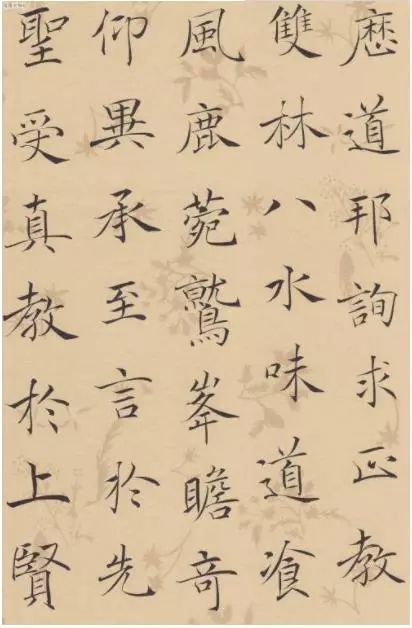 歷道邦詢求正教
雙林八水味道飡
風鹿菀鷲峯瞻奇
仰異承至言於先
聖受真教於上賢